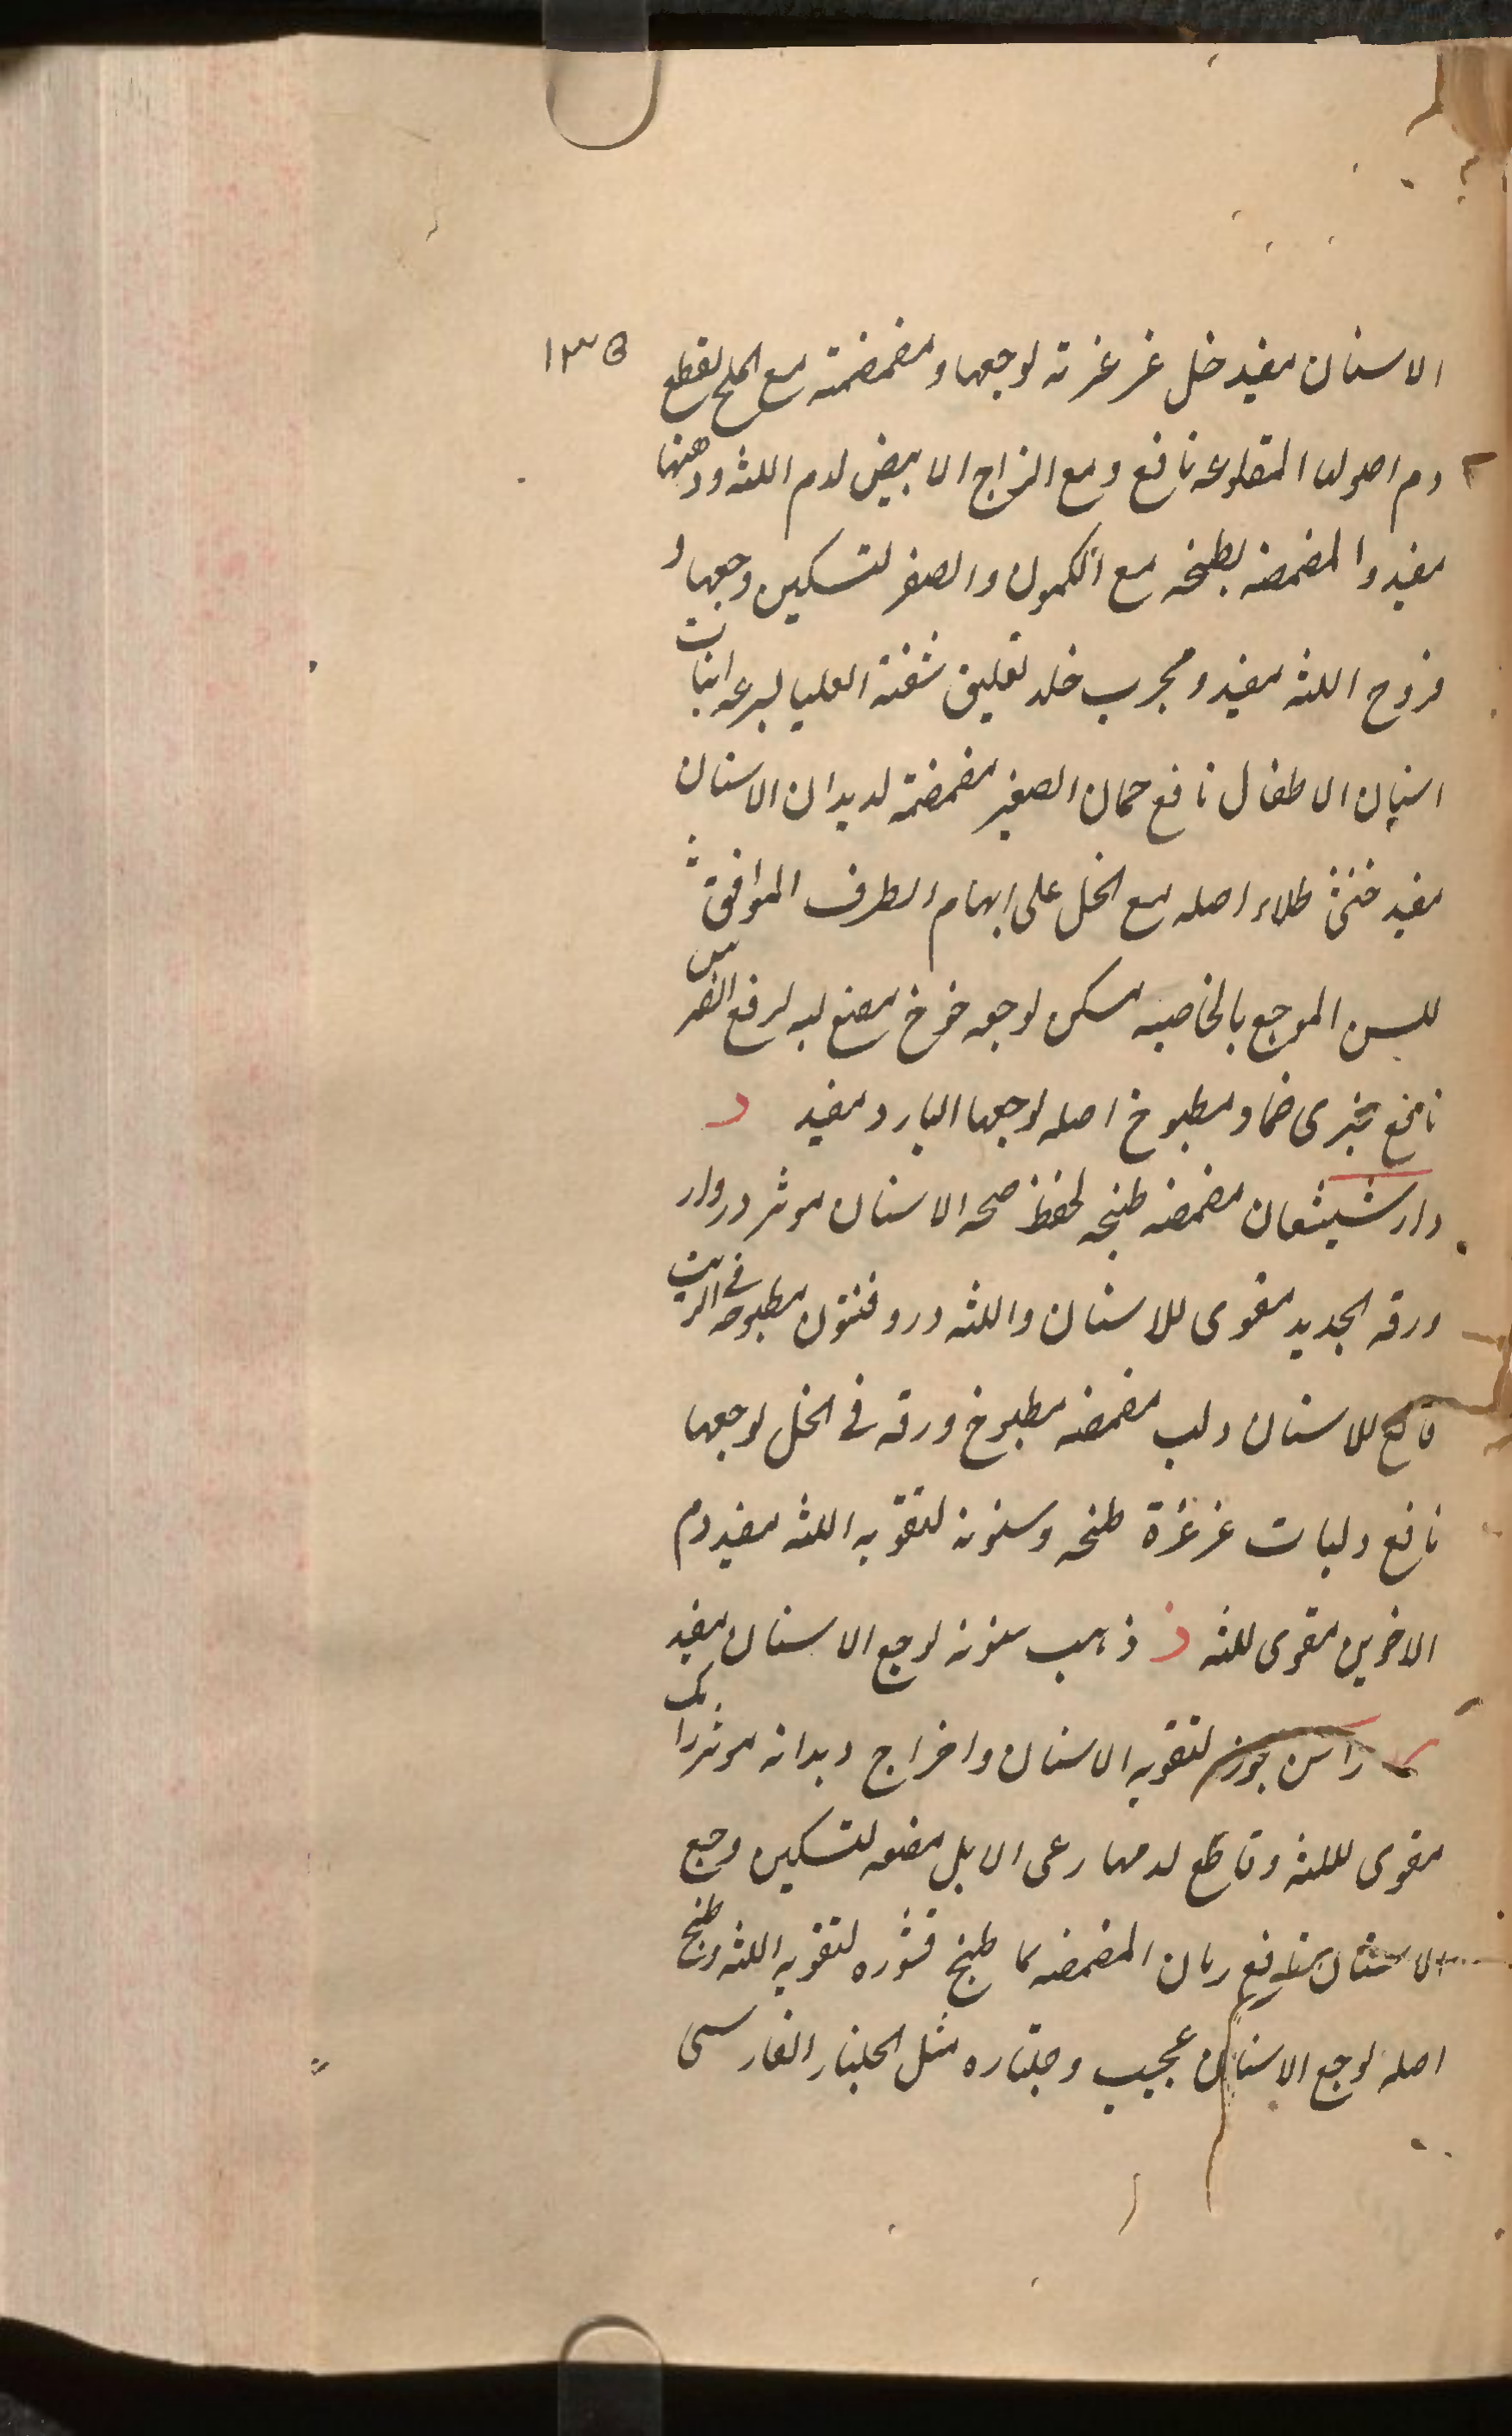 ١٣٥
الاسنان مفيد خل غرغرته لوجعها و مضمضته مع الملح لقطع
دم اصولها المقلوعه نافع و مع الزاج الابيض لدم اللثه ودهنها
مفيد و المضمضه بطبخه مع الكمون والصعتر لتسكين وجعها و
قروح اللثه مفيد و مجرب خلد تعليق شفته العليا لسرعه انبات
اسنان الاطفال نافع خمان الصغير مضمضته لديدان الاسنان
مفيد خنثى طلاء اصله مع الخل على ابهام الطرف الموافق
للسن الموجع بالخاصيه مسكن لوجعه خوخ مضغ لبه لرفع الضرس
نافع خيرى ضماد مطبوخ اصله لوجعها البارد مفيد د
دارشيشعان مضمضه طبخه لحفظ صحه الاسنان موثر دردار
ورقه الجديد مقوى للاسنان واللثه دروفنتون مطبوخه فى الزيت
قالع للاسنان دلب مضمضه مطبوخ ورقه فى الخل لوجعها
نافع دلبات غرغرة طبخه وسنونه لتقويه اللثه مفيد دم
الاخوين مقوى للثه ذ ذهب سنونه لوجع الاسنان مفيد
ر راسن جوز لتقويه الاسنان واخراج ديدانه موثر رامك
مقوى للثه وقاطع لدمها رعى الابل مضغه لتسكين وجع
الاسنان نافع رمان المضمضه بماء طبخ قشره لتقويه اللثه وطبخ
اصله لوجع الاسنان عجيب وجلناره مثل الجلنار الفارسى